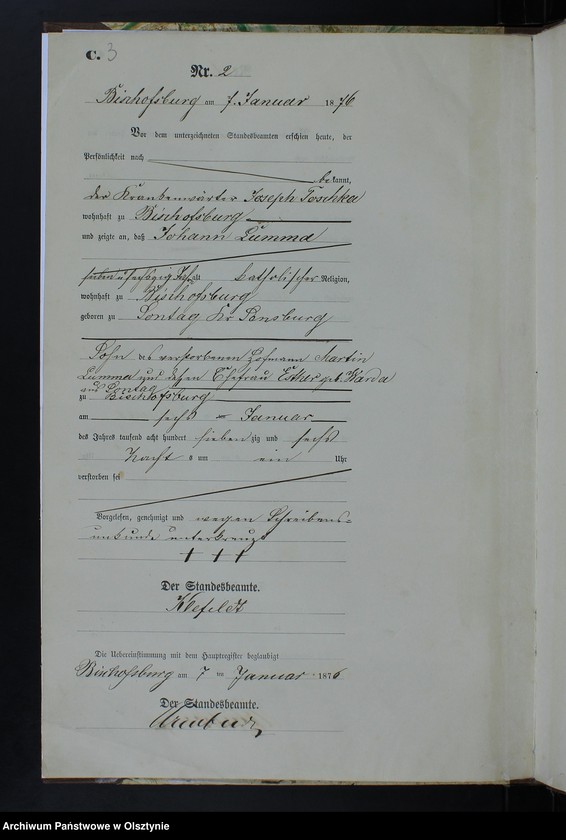 C. 3
Nr. 2
Bischofsburg am 7. Januar 1876
Vor dem unterzeichneten Standesbeamten erschien heute, der
Persönlichkeit nach
bekannt,
der Krankenwärter Joseph Toschka
wohnhaft zu Bischofsburg
und zeigte an, daß Johann Lumma
sieben u sechszig Jahr alt katholischer Religion,
wohnhaft zu Bischofsburg
geboren zu Sontag Kr Sensburg
Sohn des verstorbenen Hofmann Martin
Lumma und dessen Ehefrau Esther geb. Warda
aus Sontag
zu Bischofsburg
am sechs ten Januar
des Jahres tausend acht hundert sieben zig und sechs
Nachts um ein Uhr
verstorben sei
Vorgelesen, genehmigt und wegen Schreibens-
unkunde unterkreuzt
+ + +
Der Standesbeamte.
Die Uebereinstimmung mit dem Hauptregister beglaubigt
Bischofsburg am 7 ten Januar 1876
Der Standesbeamte.
Archiwum Państwowe w Olsztynie